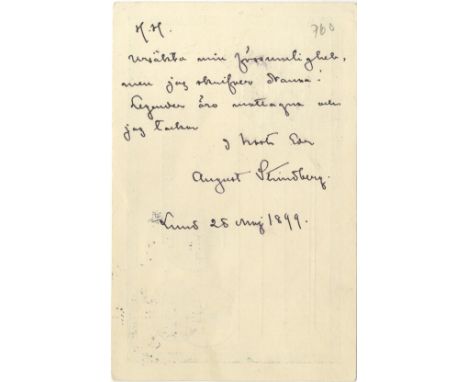 H.H. 760
Ursäkta min försumlighet,
men jag skrifver drama!
Legender äro mottagna och
jag tackar
Eder
August Strindberg.
Lund 25 Maj 1899.